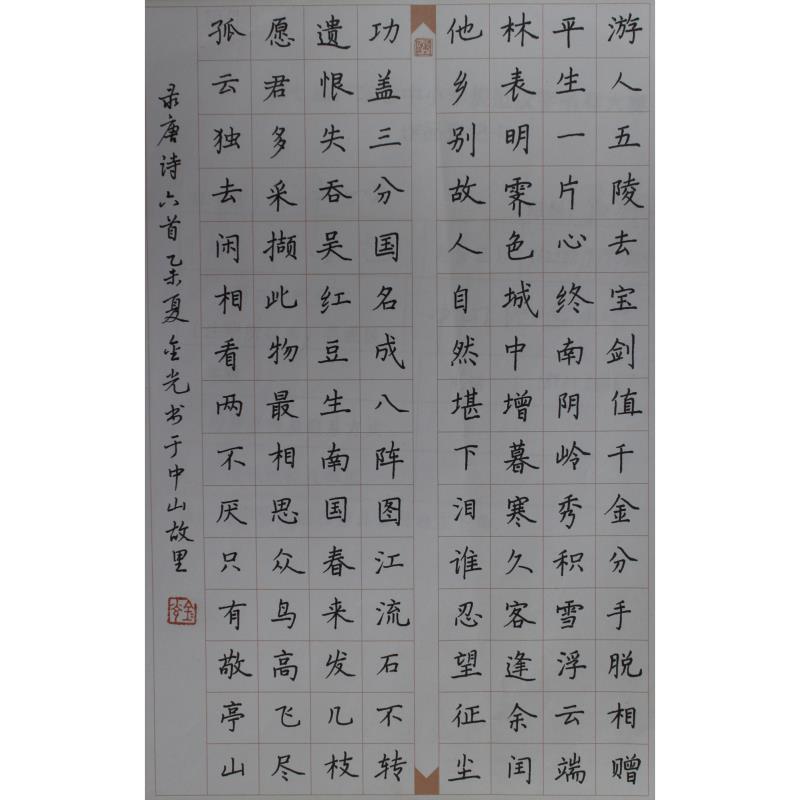 游人五陵去宝剑值千金分手脱相赠
平生一片心终南阴岭秀积雪浮云端
林表明霁色城中增暮寒久客逢余闰
他乡别故人自然堪下泪谁忍望征尘
功盖三分国名成八阵图江流石不转
遗恨失吞吴红豆生南国春来发几枝
愿君多采撷此物最相思众鸟高飞尽
孤云独去闲相看两不厌只有敬亭山
录唐诗六首乙未夏金光书于中山故里